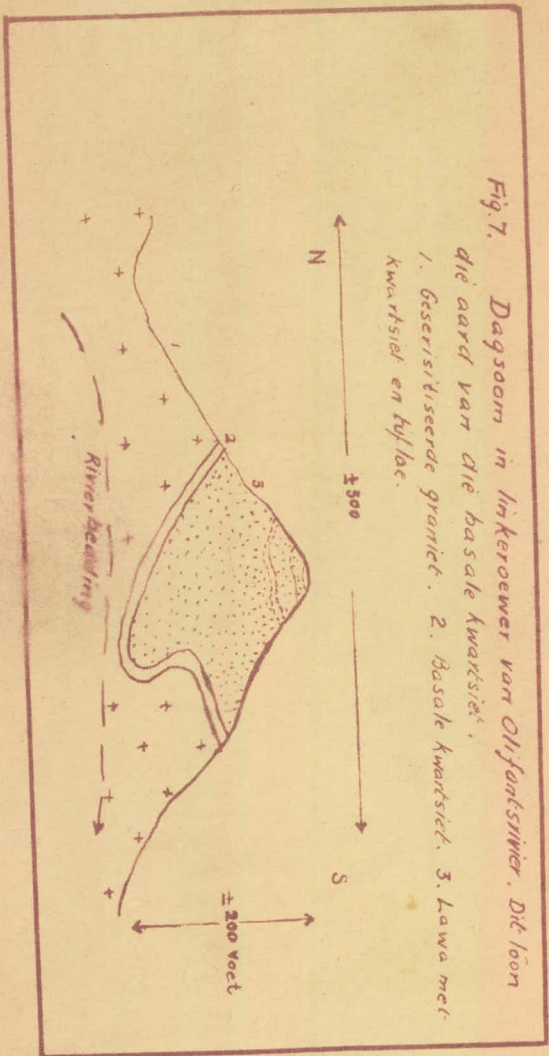 Fig.7. Dagsoom in linkeroewer van Olifantsrivier. Dit lôon
die aard van die basale kwartsiet.
1. Geserisitiseerde graniet. 2. Basale kwartsiet. 3. Lawa met
kwartsiet en tuflae.
±300
N
S
2
3
1
±200 voet
Rivierbedding